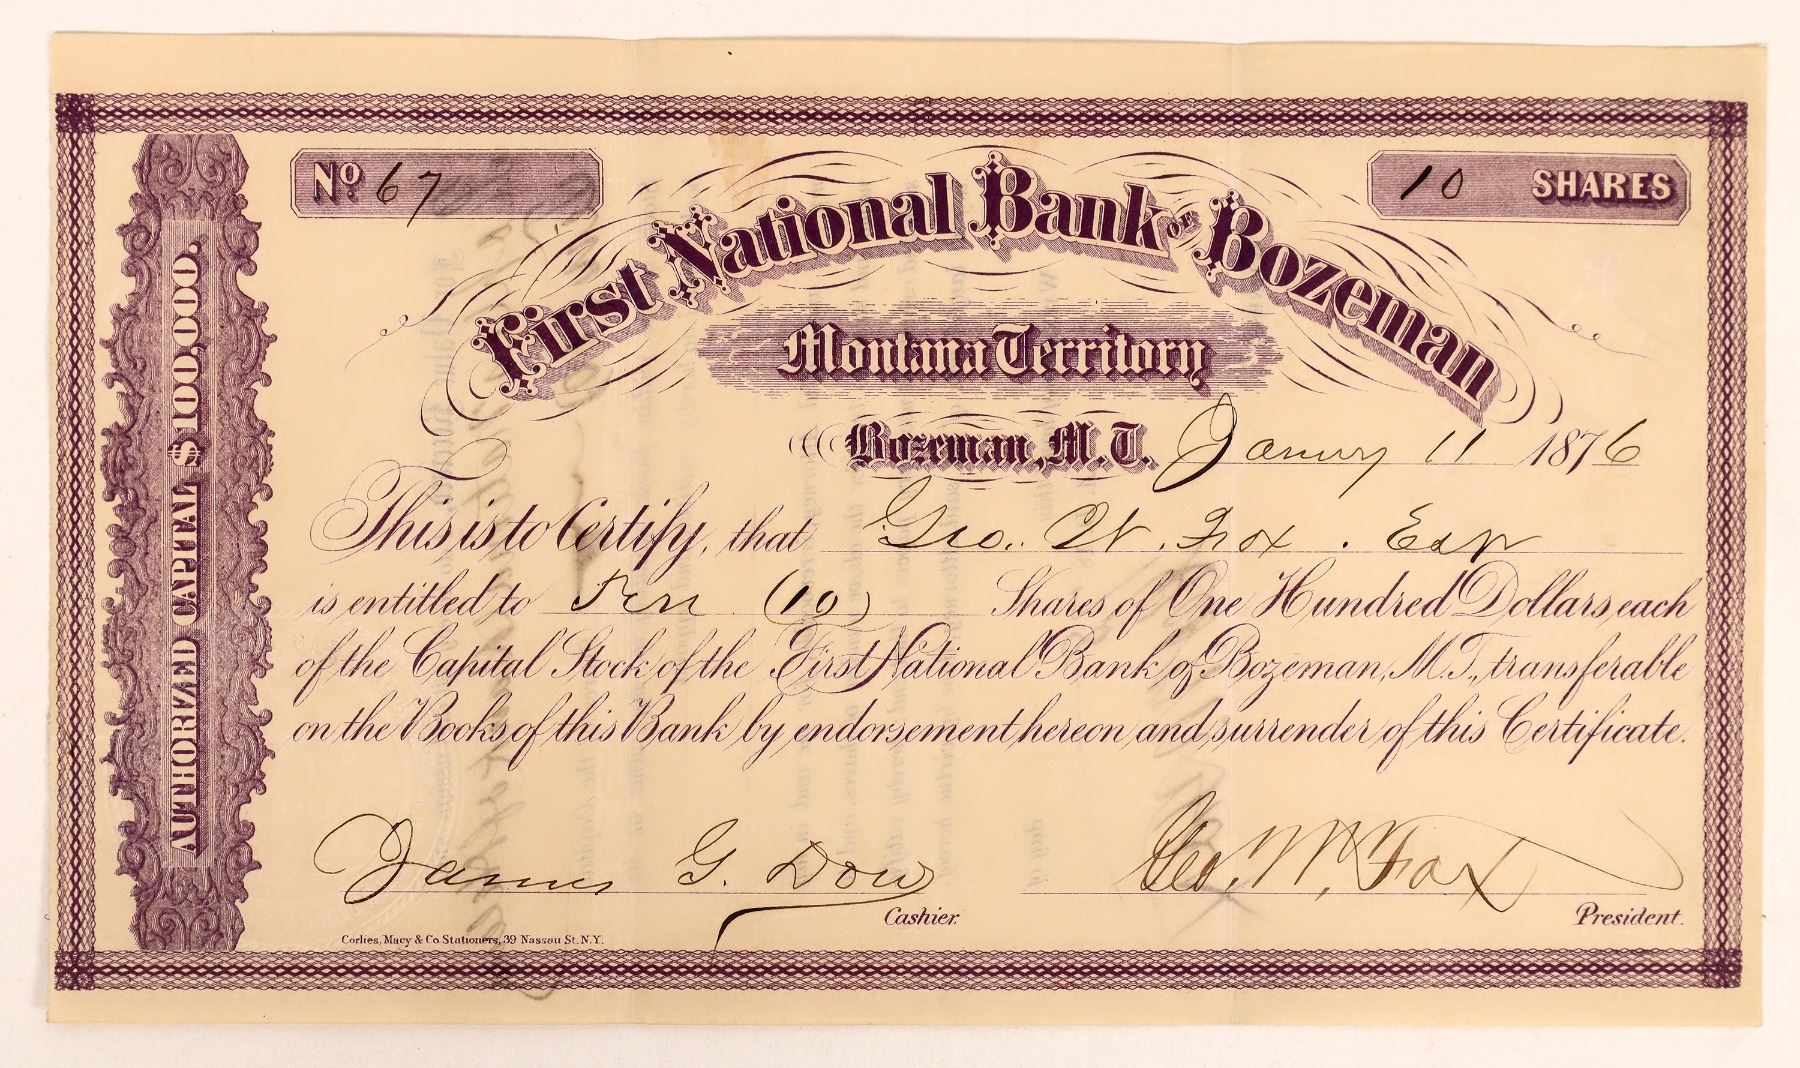 No 67
10 SHARES
First National Bank OF Bozeman
Montana Territory
Bozeman, M.T. January 11 1876
This is to Certify, that Geo. W. Fox. Esqr
is entitled to Ten (10) Shares of One Hundred Dollars each
of the Capital Stock of the First National Bank of Bozeman, M.T., transferable
on the Books of this Bank by endorsement hereon and surrender of this Certificate.
James G. Dow Geo. W. Fox
Cashier. President.
Corlies, Macy & Co. Stationers, 39 Nassau St. N.Y.
AUTHORIZED CAPITAL $100,000.